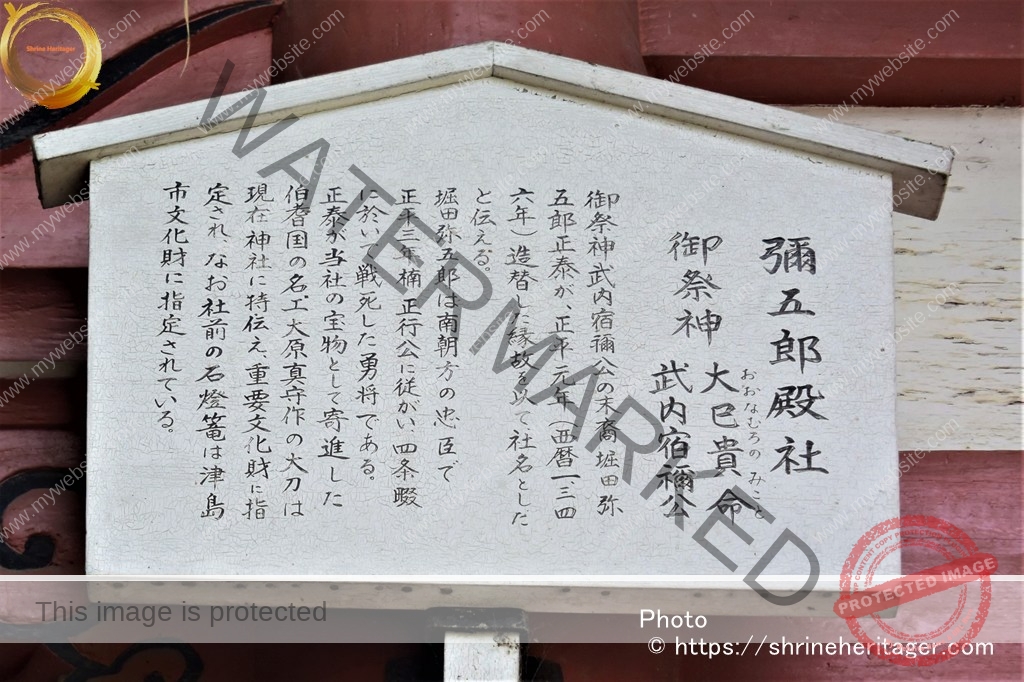 彌五郎殿社
御祭神 大巳貴命
おおなむろの みこと
武内宿禰公
御祭神武内宿禰公の末裔堀田弥
五郎正泰が、正平元年(西暦一、三四
六年)造替した縁故を以て社名とした
と伝える。
堀田弥五郎は南朝方の忠臣で
正平三年楠 正行公に従がい四条畷
に於いて戦死した勇将である。
正泰が当社の宝物として寄進した
伯耆国の名工大原真守作の大刀は
現在神社に特伝え、重要文化財に指
定され、なお社前の石燈篭は津島
市文化財に指定されている。
Shrine Heritager
WATERMARKED
www.mywebsite.com
PROTECTED IMAGE
This image is protected
Photo
© https://shrineheritager.com/